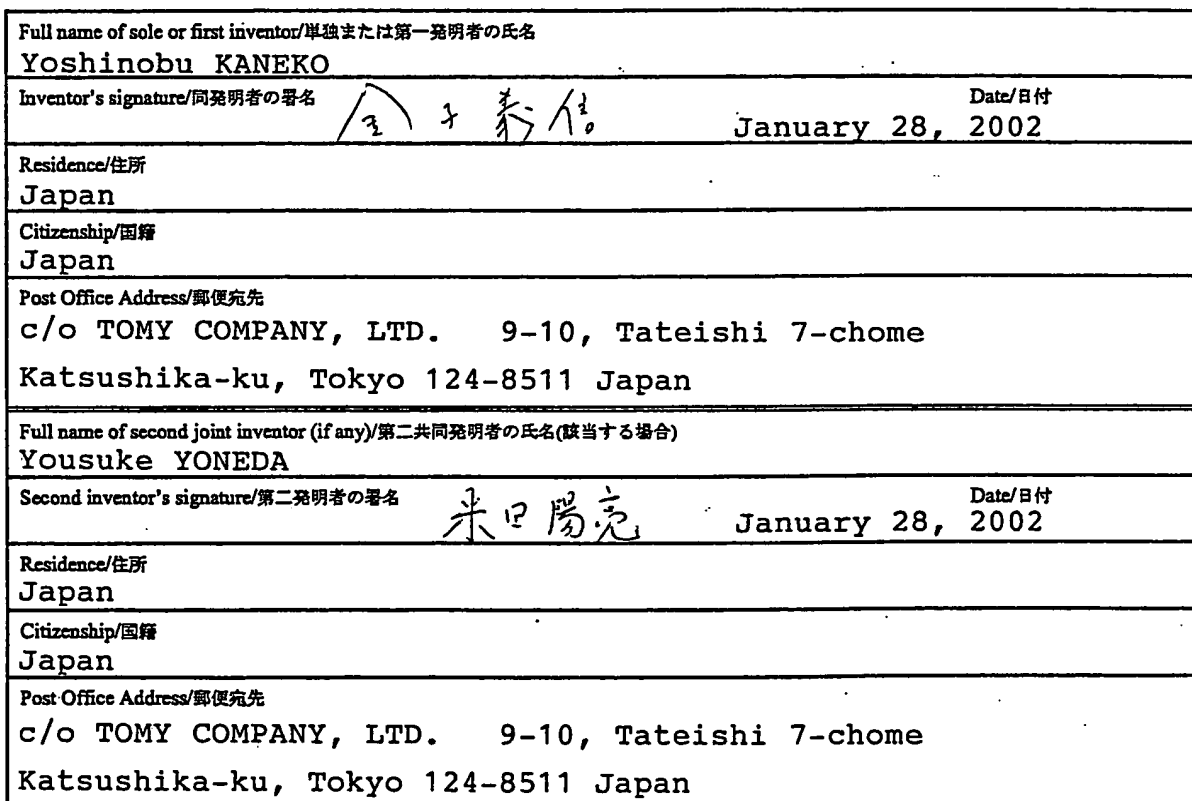 Full name of sole or first inventor/単独または第一発明者の氏名
Yoshinobu KANEKO
Inventor's signature/同発明者の署名 金子義信 Date/日付
January 28, 2002
Residence/住所
Japan
Citizenship/国籍
Japan
Post Office Address/郵便宛先
c/o TOMY COMPANY, LTD. 9-10, Tateishi 7-chome
Katsushika-ku, Tokyo 124-8511 Japan
Full name of second joint inventor (if any)/第二共同発明者の氏名(該当する場合)
Yousuke YONEDA
Second inventor's signature/第二発明者の署名 米田陽亮 Date/日付
January 28, 2002
Residence/住所
Japan
Citizenship/国籍
Japan
Post Office Address/郵便宛先
c/o TOMY COMPANY, LTD. 9-10, Tateishi 7-chome
Katsushika-ku, Tokyo 124-8511 Japan